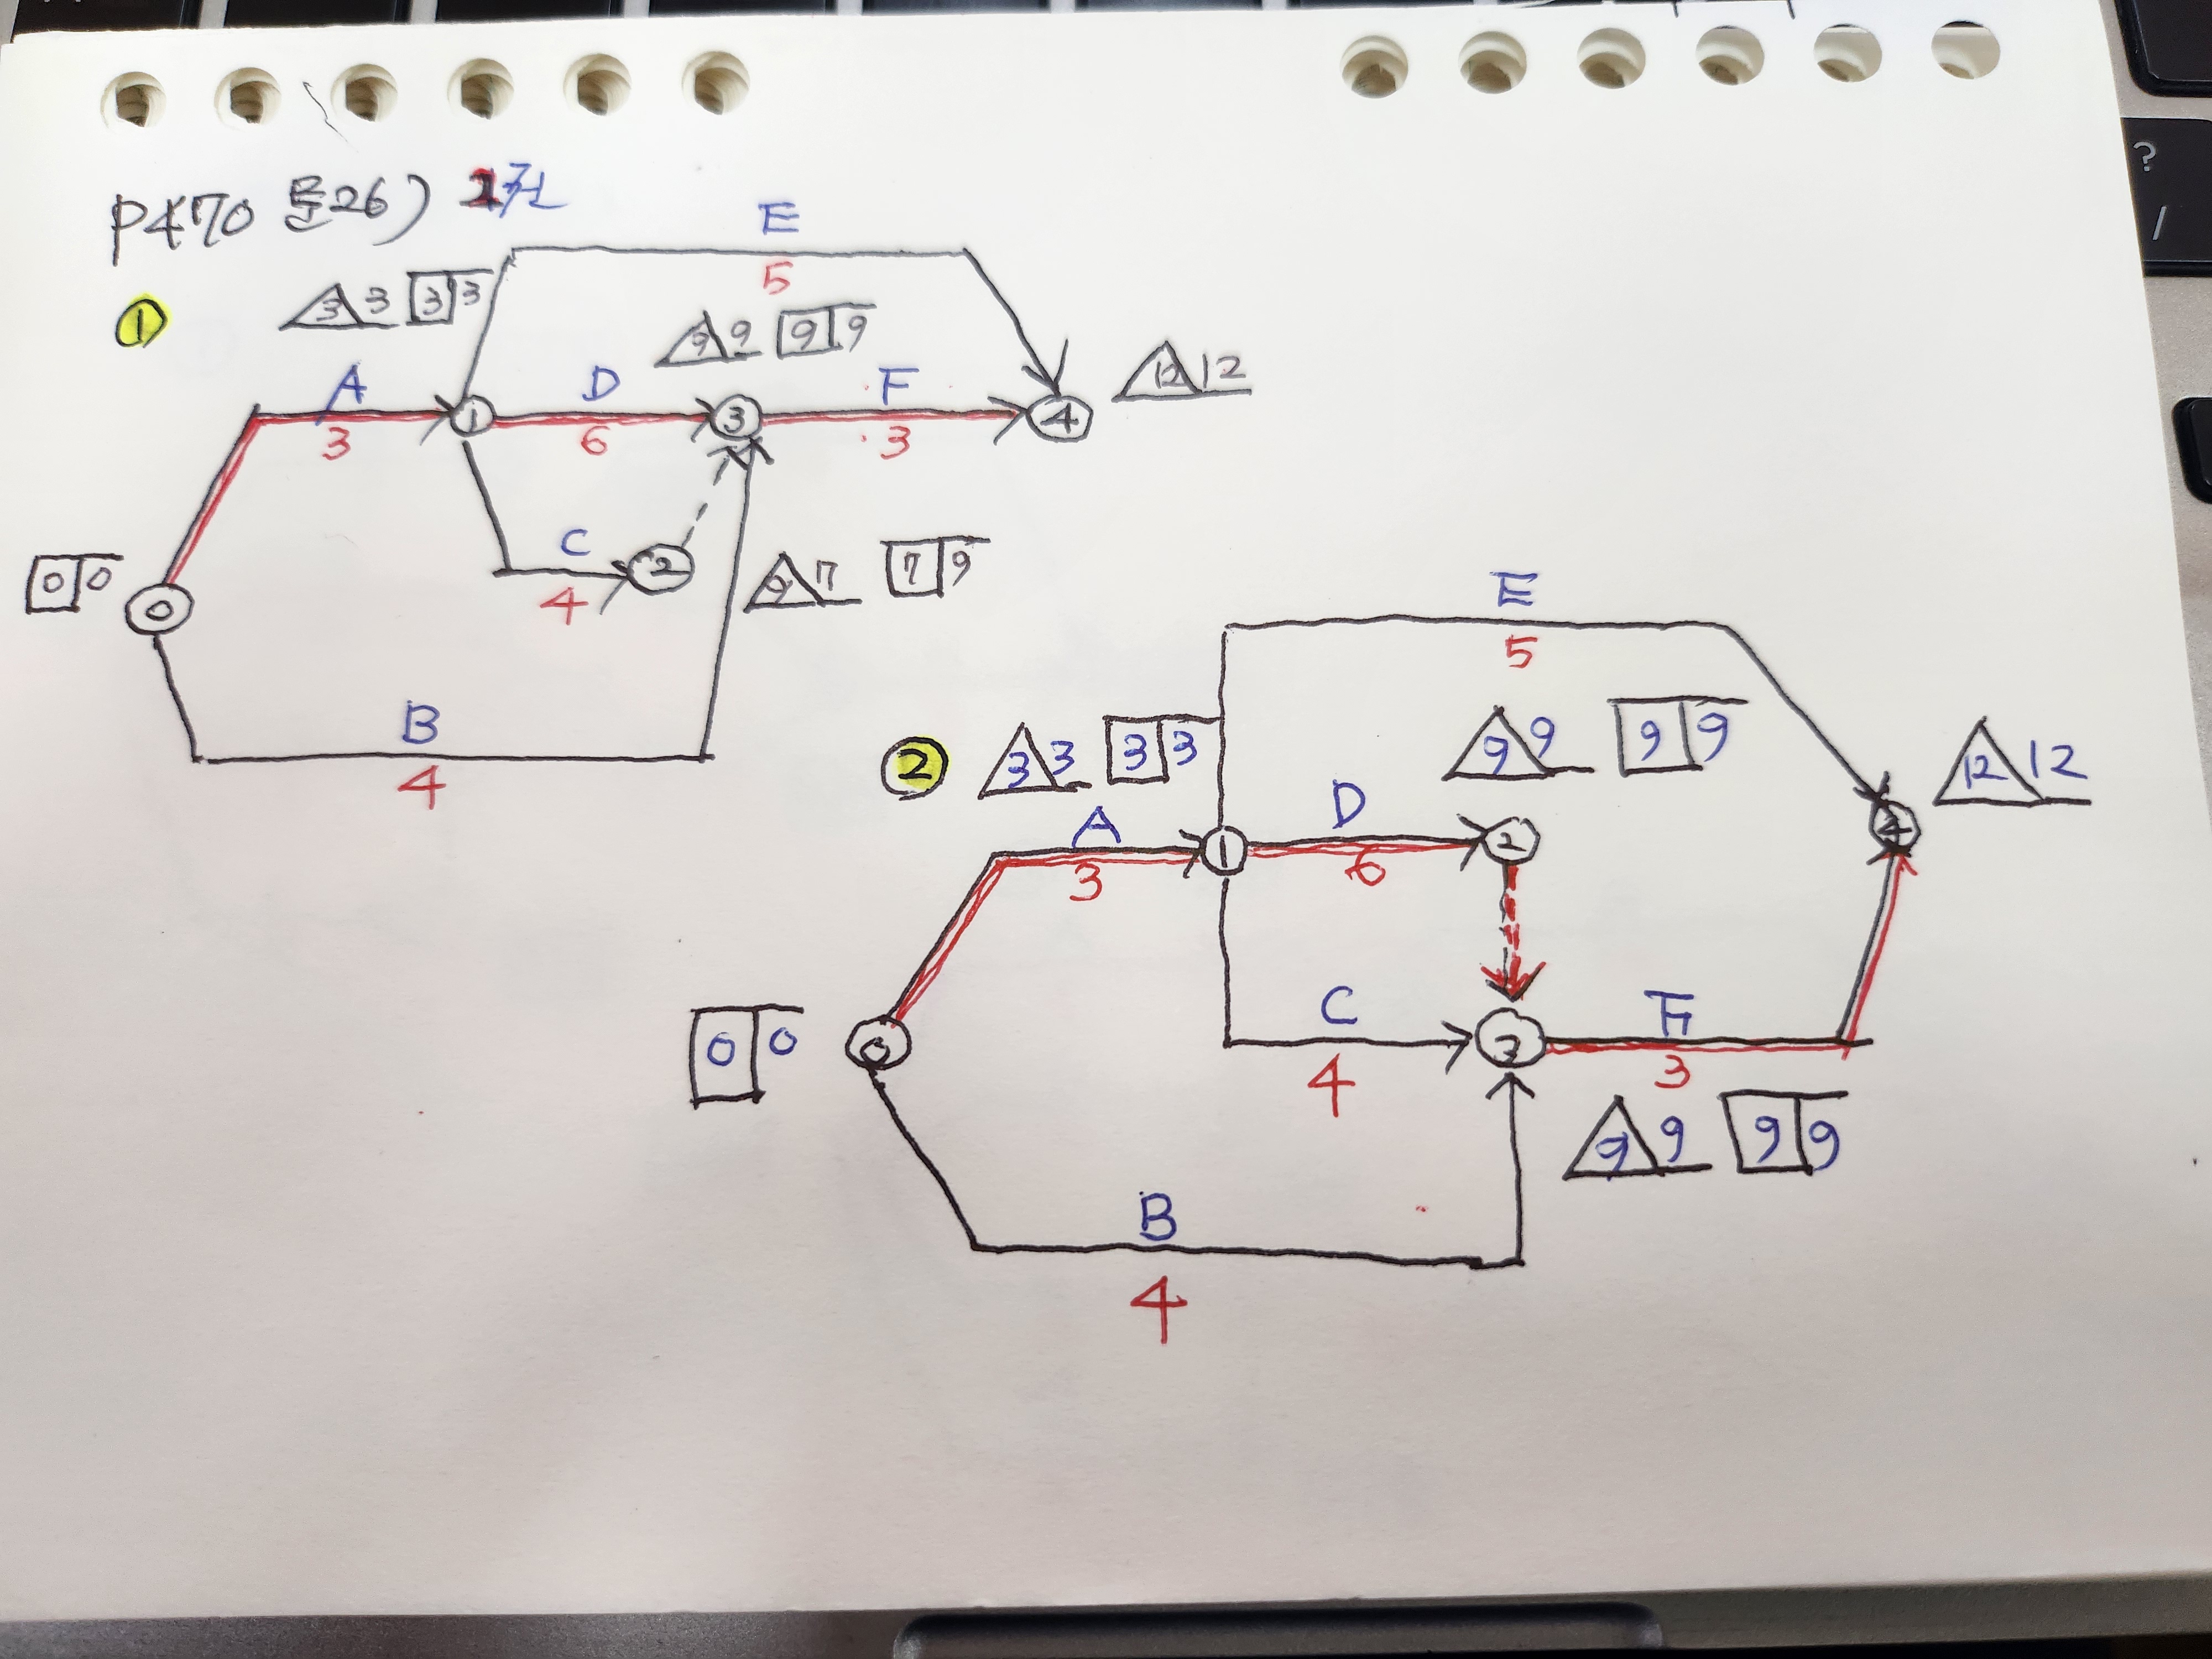 P470 문26) 1권
E
5
3 3 3 3
①
9 9 9 9
12 12
A
D
F
3
①
6
③
3
④
C
②
4
9 7 7 9
0 0
0
B
4
E
5
②
3 3 3 3
9 9 9 9
12 12
A
D
3
①
6
②
④
C
F
0 0
0
4
3
3
9 9 9 9
B
4
?
/